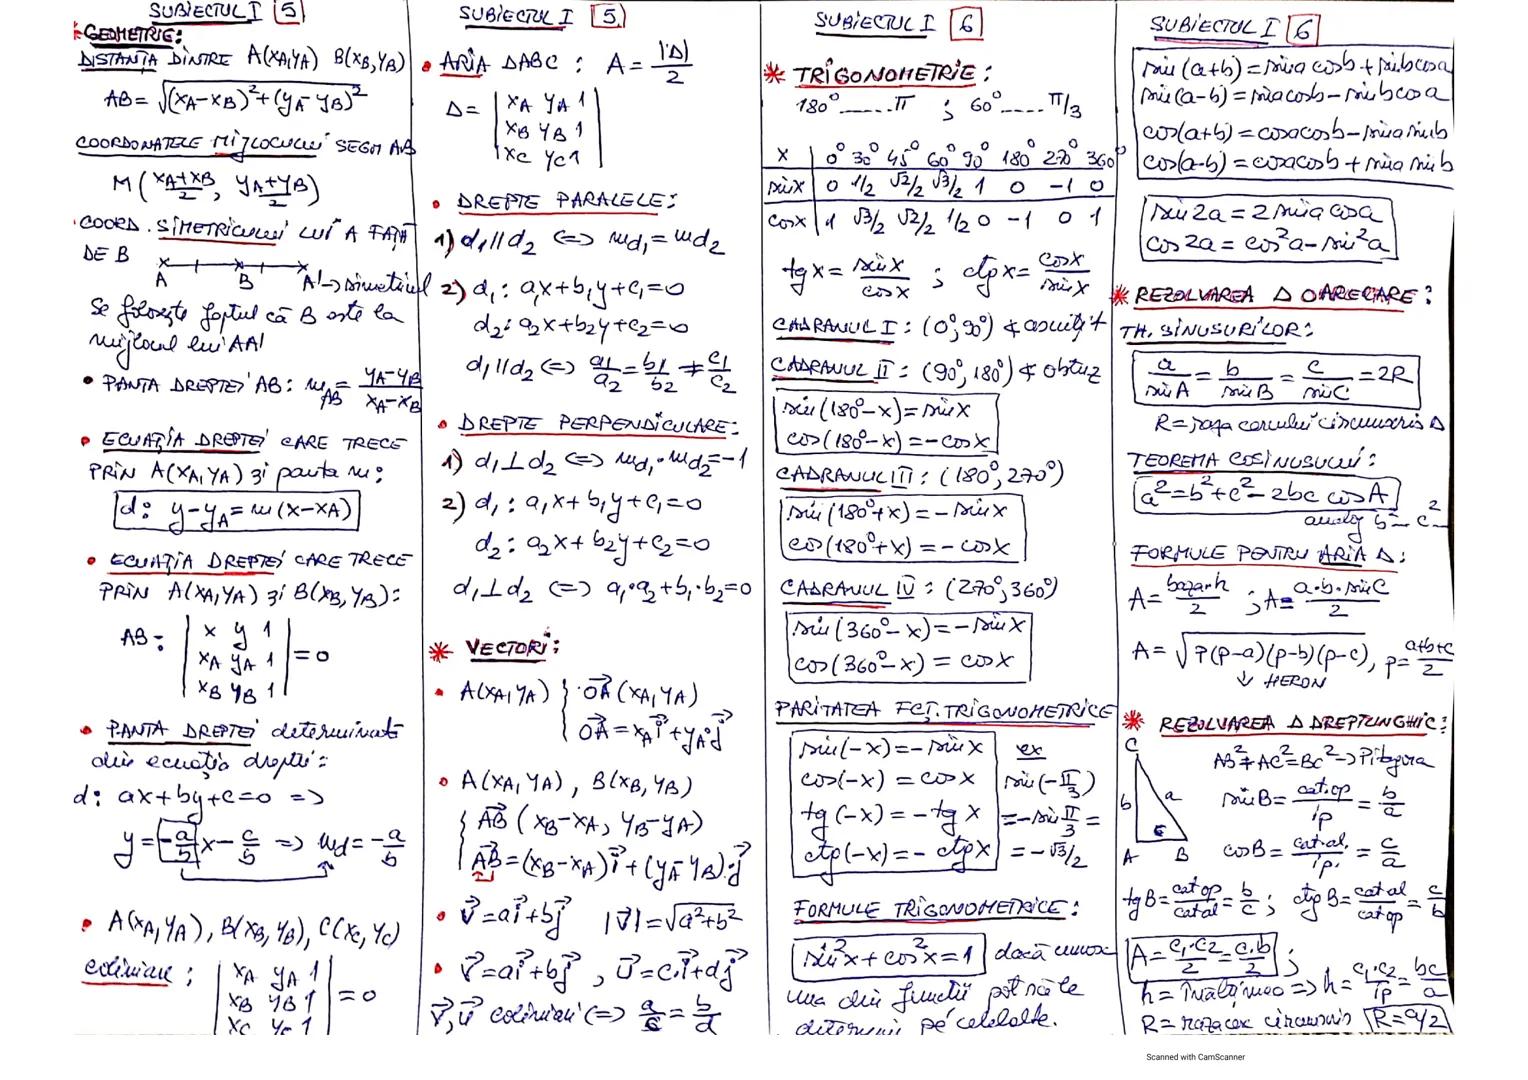 SUBIECTUL I 5
* GEOMETRIE:
DISTANȚA DINTRE A(xA,yA) B(xB,yB)
AB=√(xA-xB)²+(yA-yB)²
COORDONATELE MIJLOCULUI SEGM AB
M(xA+xB/2, yA+yB/2)
COORD. SIMETRICULUI LUI A FAȚĂ
DE B
A B A'→simetricul
Se folosește faptul că B este la
mijlocul lui AA'
• PANTA DREPTEI AB: mAB=yA-yB/xA-xB
• ECUAȚIA DREPTEI CARE TRECE
PRIN A(xA,yA) și panta m:
d: y-yA=m(x-xA)
• ECUAȚIA DREPTEI CARE TRECE
PRIN A(xA,yA) și B(xB,yB):
AB: | x y 1 |
| xA yA 1 | =0
| xB yB 1 |
• PANTA DREPTEI determinate
din ecuația dreptei:
d: ax+by+c=0 =>
y=-a/b x-c/b => md=-a/b
• A(xA,yA), B(xB,yB), C(xC,yC)
coliniare: | xA yA 1 |
| xB yB 1 | =0
| xC yC 1 |
SUBIECTUL I 5
• ARIA ΔABC: A=|Δ|/2
Δ= | xA yA 1 |
| xB yB 1 |
| xC yC 1 |
• DREPTE PARALELE:
1) d1||d2 <=> md1=md2
2) d1: a1x+b1y+c1=0
d2: a2x+b2y+c2=0
d1||d2 <=> a1/a2=b1/b2≠c1/c2
• DREPTE PERPENDICULARE:
1) d1⊥d2 <=> md1·md2=-1
2) d1: a1x+b1y+c1=0
d2: a2x+b2y+c2=0
d1⊥d2 <=> a1·a2+b1·b2=0
* VECTORI:
• A(xA,yA) { OA(xA,yA)
OA=xAi+yAj
• A(xA,yA), B(xB,yB)
{ AB(xB-xA, yB-yA)
AB=(xB-xA)i+(yA-yB)·j
• v=ai+bj |v|=√a²+b²
• v=ai+bj, u=c·i+dj
v,u coliniari <=> a/c=b/d
SUBIECTUL I 6
* TRIGONOMETRIE:
180°......π ; 60°.....π/3
x 0° 30° 45° 60° 90° 180° 270° 360°
sinx 0 1/2 √2/2 √3/2 1 0 -1 0
cosx 1 √3/2 √2/2 1/2 0 -1 0 1
tgx=sinx/cosx ; ctgx=cosx/sinx
CADRANUL I: (0°,90°) ∢ ascuțit
CADRANUL II: (90°,180°) ∢ obtuz
sin(180°-x)=sinx
cos(180°-x)=-cosx
CADRANUL III: (180°,270°)
sin(180°+x)=-sinx
cos(180°+x)=-cosx
CADRANUL IV: (270°,360°)
sin(360°-x)=-sinx
cos(360°-x)=cosx
PARITATEA FCȚ. TRIGONOMETRICE
sin(-x)=-sinx ex
cos(-x)=cosx sin(-π/3)
tg(-x)=-tgx =-sinπ/3=
ctg(-x)=-ctgx =-√3/2
FORMULE TRIGONOMETRICE:
sin²x+cos²x=1 dacă cunosc
una din funcții pot să le
determin pe celelalte.
SUBIECTUL I 6
sin(a+b)=sinacosb+sinbcosa
sin(a-b)=sinacosb-sinbcosa
cos(a+b)=cosacosb-sinasinb
cos(a-b)=cosacosb+sinasinb
sin2a=2sinacosa
cos2a=cos²a-sin²a
* REZOLVAREA Δ OARECARE:
TH. SINUSURILOR:
a/sinA=b/sinB=c/sinC=2R
R=raza cercului circumscris Δ
TEOREMA COSINUSULUI:
a²=b²+c²-2bc cosA
analog b²- c²-
FORMULE PENTRU ARIA Δ:
A=baza·h/2 ; A=a·b·sinC/2
A=√p(p-a)(p-b)(p-c), p=a+b+c/2
↓ HERON
* REZOLVAREA Δ DREPTUNGHIC:
C AB²+AC²=BC²→Pitagora
b a sinB=cat.op/ip=b/a
c
A B cosB=cat.al./ip.=c/a
tgB=cat op/cat al=b/c ; ctgB=cat al/cat op=c/b
A=c1·c2/2=c·b/2 ;
h=înălțimea => h=c1·c2/ip=bc/a
R=raza cerc circumscris R=a/2
Scanned with CamScanner